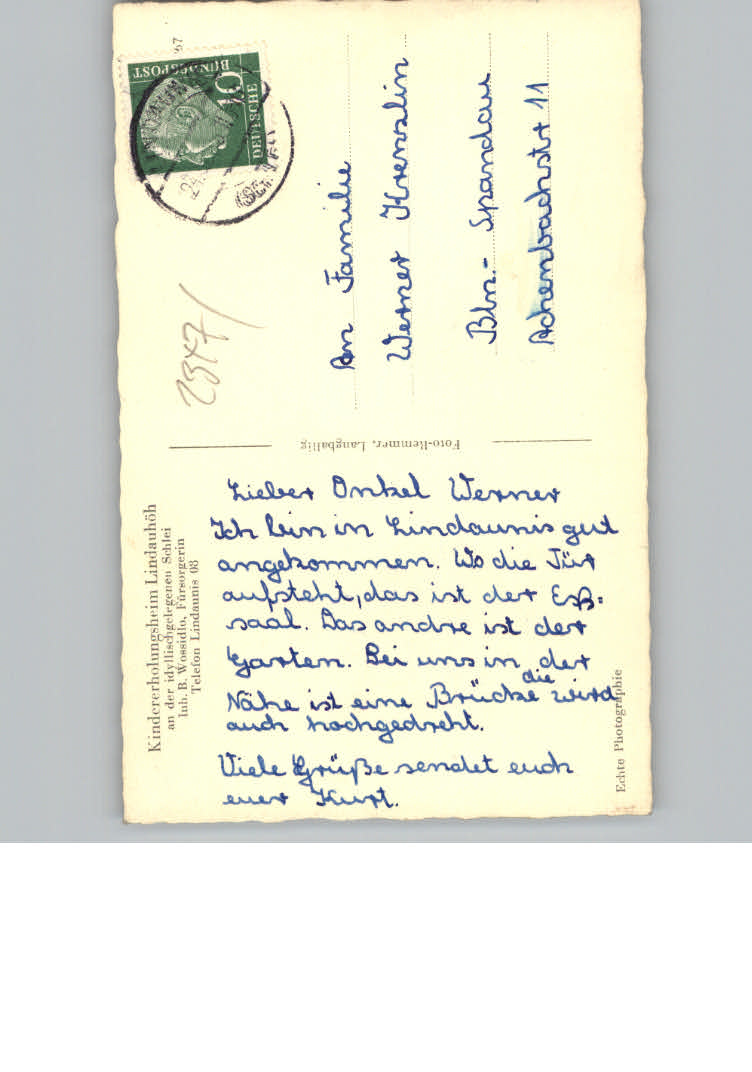 Kindererholungsheim Lindauhöh
an der idyllischgelegenen Schlei
Inh. B. Wossidlo, Fürsorgerin
Telefon Lindaunis 08
Lieber Onkel Werner
Ich bin in Lindaunis gut
angekommen. Wo die Tür
aufsteht, das ist der Eß=
saal. Das andre ist der
Garten. Bei uns in der
Nähe ist eine Brücke die wird
auch hochgedreht.
Viele Grüße sendet euch
euer Kurt.
Echte Photographie
Foto-Remmer, Langballig
DEUTSCHE
BUNDESPOST
10
2347/
An Familie
Werner Krenzlin
Bln.- Spandau
Achenbachstr 11